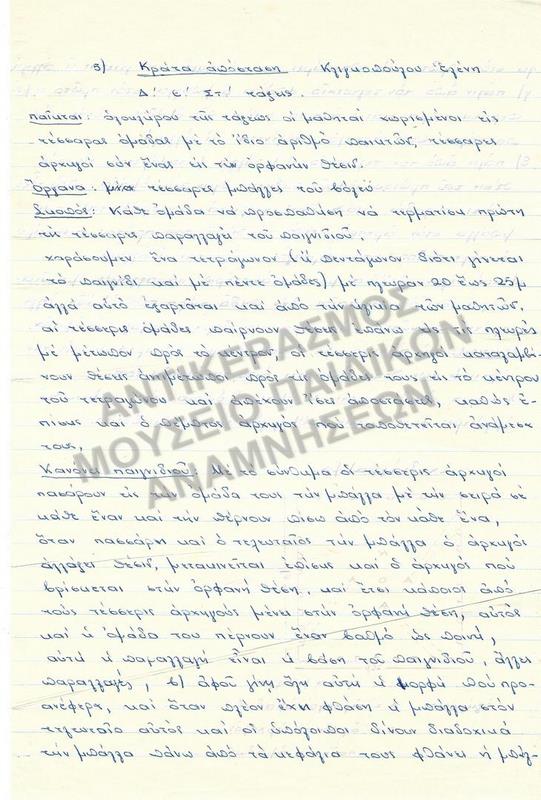 5) Κράτα ἀπόσταση Κλιγκοπούλου Ἑλένη
Δ' ε' Στ' τάξεις.
παῖυται: ὁλοκλήρου τῆς τάξεως οἱ μαθηταί χωρισμένοι εἰς
τέσσαρας ὁμάδας μέ τό ἴδιο ἀριθμό παικτῶν, τέσσαρες
ἀρχηγοί σύν ἕνας εἰς τήν ὀρφανήν θέσιν.
Ὄργανα: τέσσαρες μπάλλες τοῦ βόλεϋ
Σκοπός: Κάθε ὁμάδα νά προσπαθήση νά τερματίση πρώτη
τίς τέσσαρες παραλλαγές τοῦ παιγνιδιοῦ.
χαράσουμεν ἕνα τετράγωνον (ἤ πεντάγωνον διότι γίνεται
τό παιγνίδι καί μέ πέντε ὁμάδες) μέ πλευράν 20 ἕως 25μ
ἀλλά αὐτό ἐξαρτᾶται καί ἀπό τήν ἡλικία τῶν μαθητῶν,
αἱ τέσσερις ὁμάδες παίρνουν θέσεις ἐπάνω εἰς τίς πλευρές
μέ μέτωπον πρός τό κέντρον, οἱ τέσσερις ἀρχηγοί καταλαμβά-
νουν θέσεις ἀντιμέτωποι πρός τίς ὁμάδες τους εἰς τό κέντρο
τοῦ τετραγώνου καί ἀπέχουν ἴσες ἀποστάσεις, καθώς ἐ-
πίσης καί ὁ πέμπτος ἀρχηγός πού τοποθετεῖται ἀνάμεσα
τους,
Κανόνες παιγνιδιοῦ: Μέ τό σύνθημα οἱ τέσσερις ἀρχηγοί
πασάρουν εἰς τήν ὁμάδα τους τήν μπάλλα μέ τήν σειρά σέ
κάθε ἕναν καί τήν πέρνουν πίσω ἀπό τόν κάθε ἕνα,
ὅταν πασσάρη καί ὁ τελευταῖος τήν μπάλλα ὁ ἀρχηγός
ἀλλάζει θέσιν, μετακινεῖται ἐπίσης καί ὁ ἀρχηγός πού
βρίσκεται στήν ὀρφανή θέση, καί ἔτσι κάποιος ἀπό
τούς τέσσερις ἀρχηγούς μένει στήν ὀρφανή θέση, αὐτός
καί ἡ ὁμάδα του πέρνουν ἕναν βαθμό ὡς ποινή,
αὐτή ἡ παραλλαγή εἶναι ἡ βάση τοῦ παιγνιδιοῦ, ἄλλες
παραλλαγές, β) ἀφοῦ γίνη ὅλη αὐτή ἡ μορφή πού προ-
ανέφερα, καί ὅταν πλέον ἔχη φθάση ἡ μπάλλα στόν
τελευταῖο αὐτός καί οἱ ὑπόλοιποι δίνουν διαδοχικά
τήν μπάλλα πάνω ἀπό τά κεφάλια τους φθάνει ἡ μπάλ-
ΑΝΤΙΚΕΡΑΣΜΟΣ
ΜΟΥΣΕΙΟ ΠΑΙΔΙΚΩΝ
ΑΝΑΜΝΗΣΕΩΝ